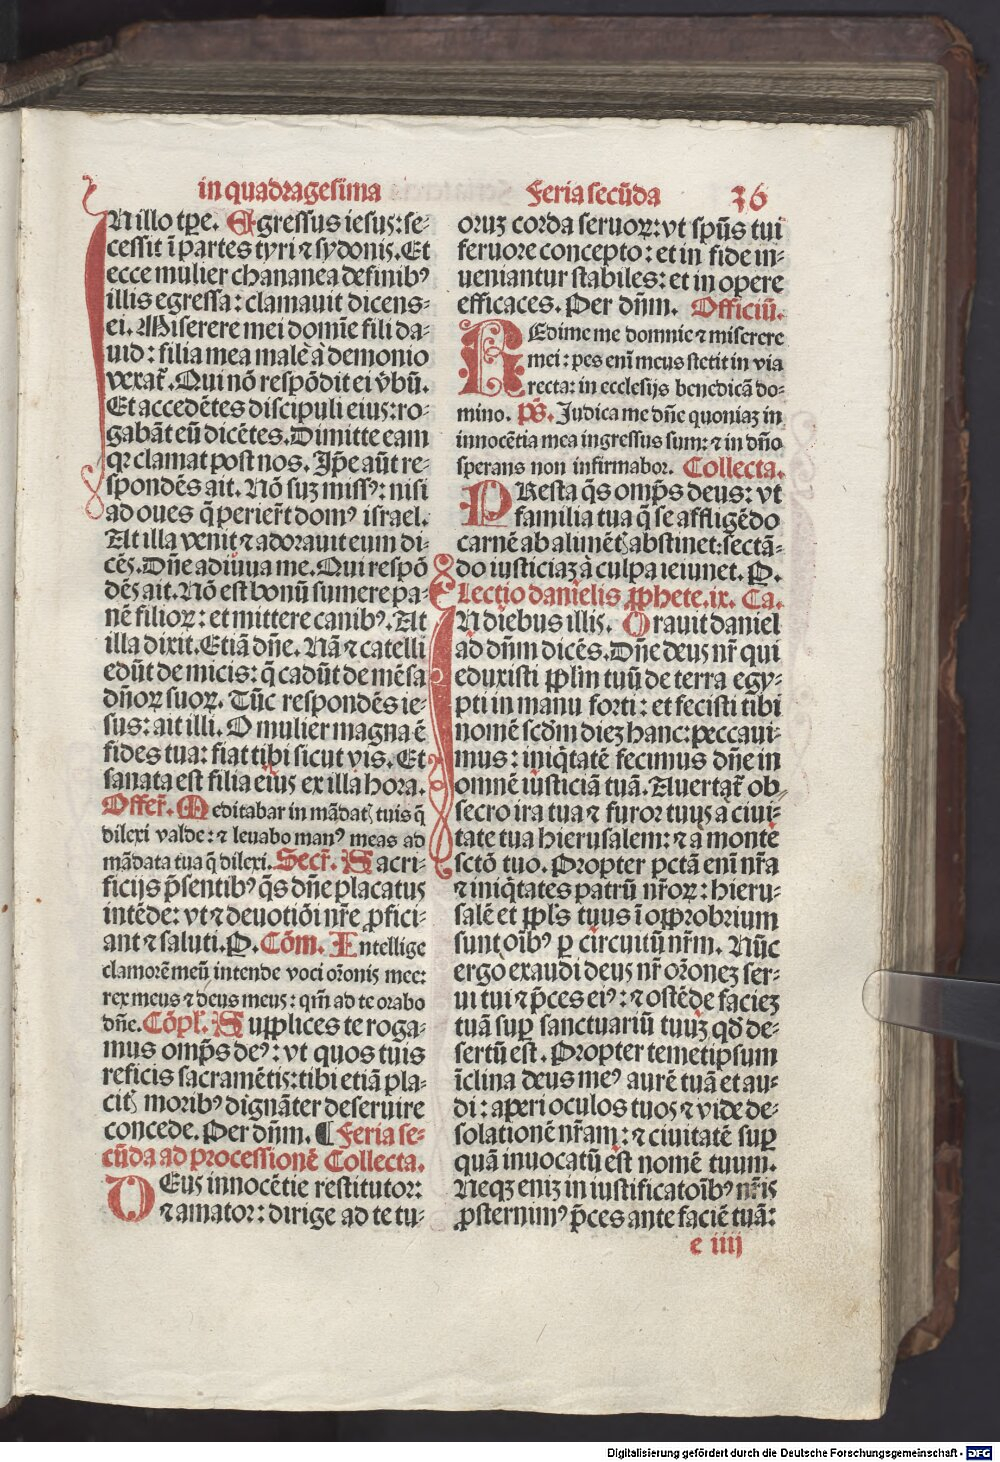 in quadragesima
Feria secūda
36
IN illo tꝑe. Egressus iesus: se⸗
cessit ī partes tyri ⁊ sydonis. Et
ecce mulier chananea de finibꝰ
illis egressa: clamauit dicens⸗
ei. Miserere mei domīe fili da⸗
uid: filia mea male a demonio
vexat̄. Qui nō respōdit ei v̄bū.
Et accedētes discipuli eius: ro⸗
gabāt eū dicētes. Dimitte eam
qꝛ clamat post nos. Ip̄e aūt re⸗
spondēs ait. Nō suꝫ missꝰ: nisi
ad oues q̄ perier̄t domꝰ israel.
At illa venit ⁊ adorauit eum di⸗
cēs. Dn̄e adiuua me. Qui respō
dēs ait. Nō est bonū sumere pa⸗
nē filioꝝ: et mittere canibꝰ. At
illa dixit. Etiā dn̄e. Nā ⁊ catelli
edūt de micis: q̄ cadūt de mēsa
dn̄oꝝ suoꝝ. Tūc respondēs ie⸗
sus: ait illi. O mulier magna ē
fides tua: fiat tibi sicut vis. Et
sanata est filia eius ex illa hora.
Offer̄. Meditabar in mādatꝭ tuis q̄
dilexi valde: ⁊ leuabo manꝰ meas ad
mādata tua q̄ dilexi. Secr̄. Sacri⸗
ficijs p̄sentibꝰ q̄s dn̄e placatus
intēde: vt ⁊ deuotiōi nr̄e ꝓfici⸗
ant ⁊ saluti. P. Cōm. Intellige
clamorē meū intende voci or̄onis mee:
rex meus ⁊ deus meus: qm̄ ad te orabo
dn̄e. Cōpl̄. Supplices te roga⸗
mus omp̄s deꝰ: vt quos tuis
reficis sacramētis: tibi etiā pla⸗
citꝭ moribꝰ dignāter deseruire
concede. Per dn̄m. ¶ Feria se⸗
cūda ad processionē Collecta.
DEus innocētie restitutor:
⁊ amator: dirige ad te tu⸗
oruꝫ corda seruoꝝ: vt sp̄us tui
feruore concepto: et in fide in⸗
ueniantur stabiles: et in opere
efficaces. Per dn̄m. Officiū.
REdime me domine ⁊ miserere
mei: pes enī meus stetit in via
recta: in ecclesijs benedicā do⸗
mino. p̄s. Judica me dn̄e quoniaꝫ in
innocētia mea ingressus sum: ⁊ in dn̄o
sperans non infirmabor. Collecta.
PResta q̄s omp̄s deus: vt
familia tua q̄ se affligēdo
carnē ab alimētꝭ abstinet: sectā⸗
do iusticiaꝫ a culpa ieiunet. P.
Lectio danielis ꝓphete. ix. Ca.
IN diebus illis. Orauit daniel
ad dn̄m dicēs. Dn̄e deus nr̄ qui
eduxisti pplm̄ tuū de terra egy⸗
pti in manu forti: et fecisti tibi
nomē scd̄m dieꝫ hanc: peccaui⸗
mus: iniq̄tatē fecimus dn̄e in
omnē iusticiā tuā. Auertat̄ ob⸗
secro ira tua ⁊ furor tuus a ciui⸗
tate tua hierusalem: ⁊ a monte
sctō tuo. Propter pctā enī nr̄a
⁊ iniq̄tates patrū nr̄oꝝ: hieru⸗
salē et ppl̄s tuus ī opprobrium
sunt oībꝰ ꝑ circuitū nr̄m. Nūc
ergo exaudi deus nr̄ or̄oneꝫ ser⸗
ui tui ⁊ p̄ces eiꝰ: ⁊ ostēde facieꝫ
tuā suꝑ sanctuariū tuuꝫ qd̄ de⸗
sertū est. Propter temetipsum
īclina deus meꝰ aurē tuā et au⸗
di: aperi oculos tuos ⁊ vide de⸗
solationē nr̄am: ⁊ ciuitatē suꝑ
quā inuocatū est nomē tuum.
Neqꝫ eniꝫ in iustificatoībꝰ nr̄is
ꝓsternimꝰ p̄ces ante faciē tuā:
e iiij
Digitalisierung gefördert durch die Deutsche Forschungsgemeinschaft - DFG